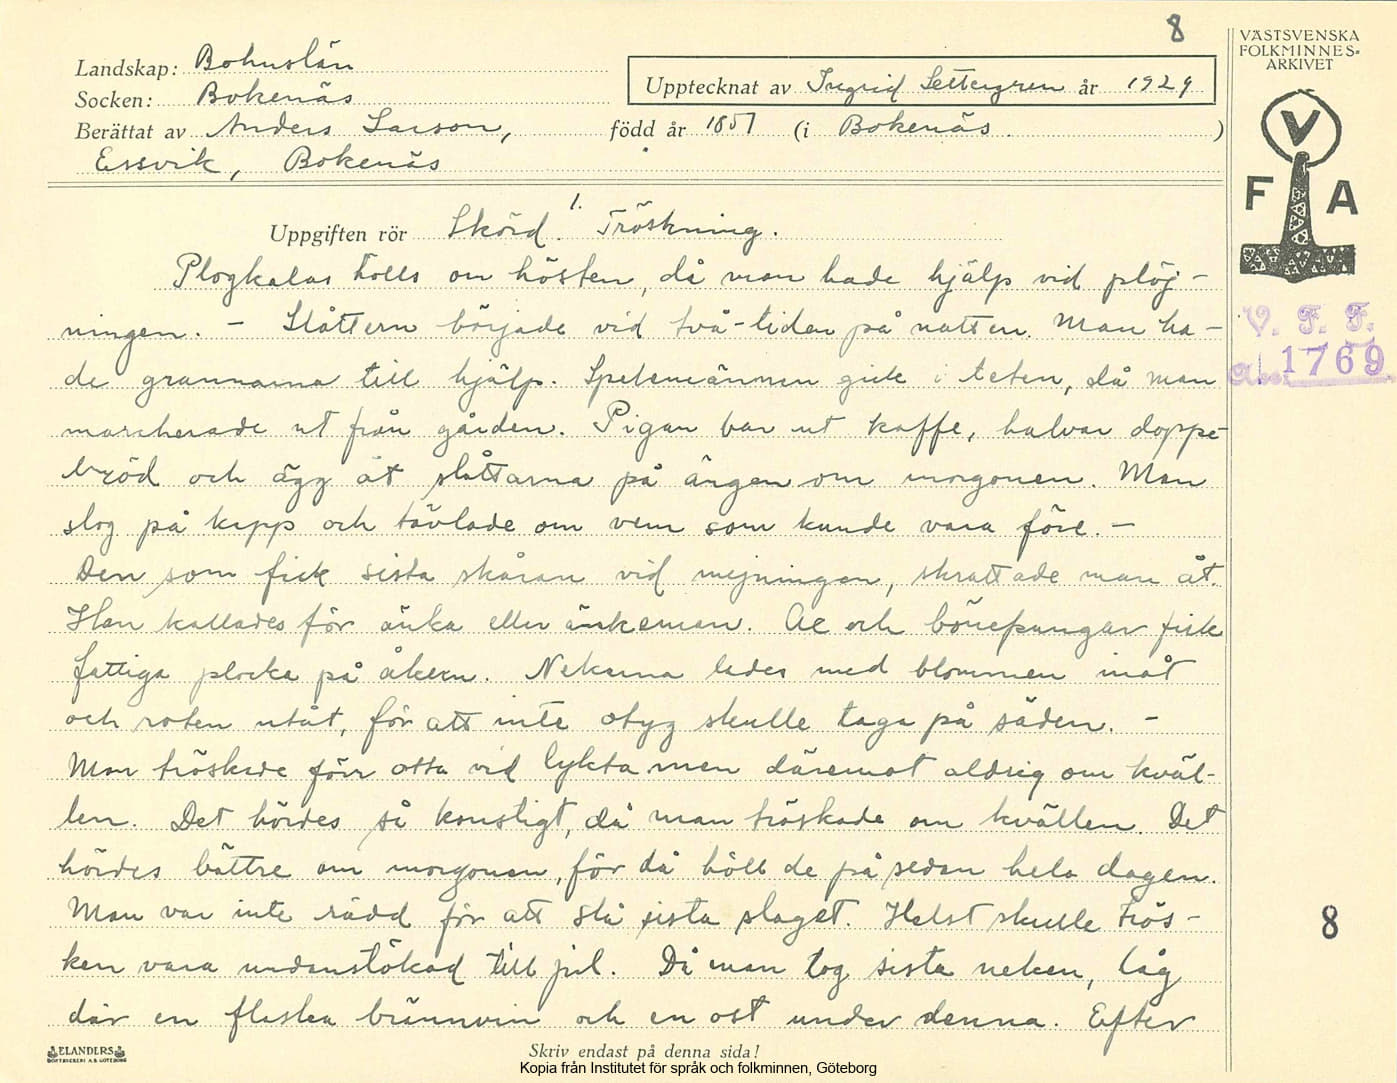 8
Landskap: Bohuslän
Socken: Bokenäs
Upptecknat av Ingrid Settergren år 1929
Berättat av Anders Larson, född år 1857 (i Bokenäs. )
Essvik, Bokenäs
VÄSTSVENSKA
FOLKMINNES-
ARKIVET
V
F A
Uppgiften rör Skörd. 1. Tröskning.
Plogkalas holls om hösten, då man hade hjälp vid plöj-
ningen. - Slåttern började vid två-tiden på natten. Man ha-
V. F. F.
1769
de grannarna till hjälp. Spelemännen gick i teten, då man
marcherade ut från gården. Pigan bar ut kaffe, halvar doppe-
bröd och ägg åt slåttarna på ängen om morgonen. Man
slog på kapp och tävlade om vem som kunde vara före. -
Den som fick sista skåran vid mejningen, skrattade man åt.
Han kallades för änka eller änkeman. Ax och bönepungar fick
fattiga plocka på åkern. Nekarna lades med blommen inåt
och roten utåt, för att inte otyg skulle taga på säden. -
Man tröskade förr otta vid lykta men däremot aldrig om kväl-
len. Det hördes så konstigt, då man tröskade om kvällen. Det
hördes bättre om morgonen, för då höll de på sedan hela dagen.
Man var inte rädd för att slå sista slaget. Helst skulle trös-
8
ken vara undanstökad till jul. Då man tog sista neken, låg
där en flaska brännvin och en ost under denna. Efter
ELANDERS
BOKTRYCKERI A.B. GÖTEBORG
Skriv endast på denna sida!
Kopia från Institutet för språk och folkminnen, Göteborg